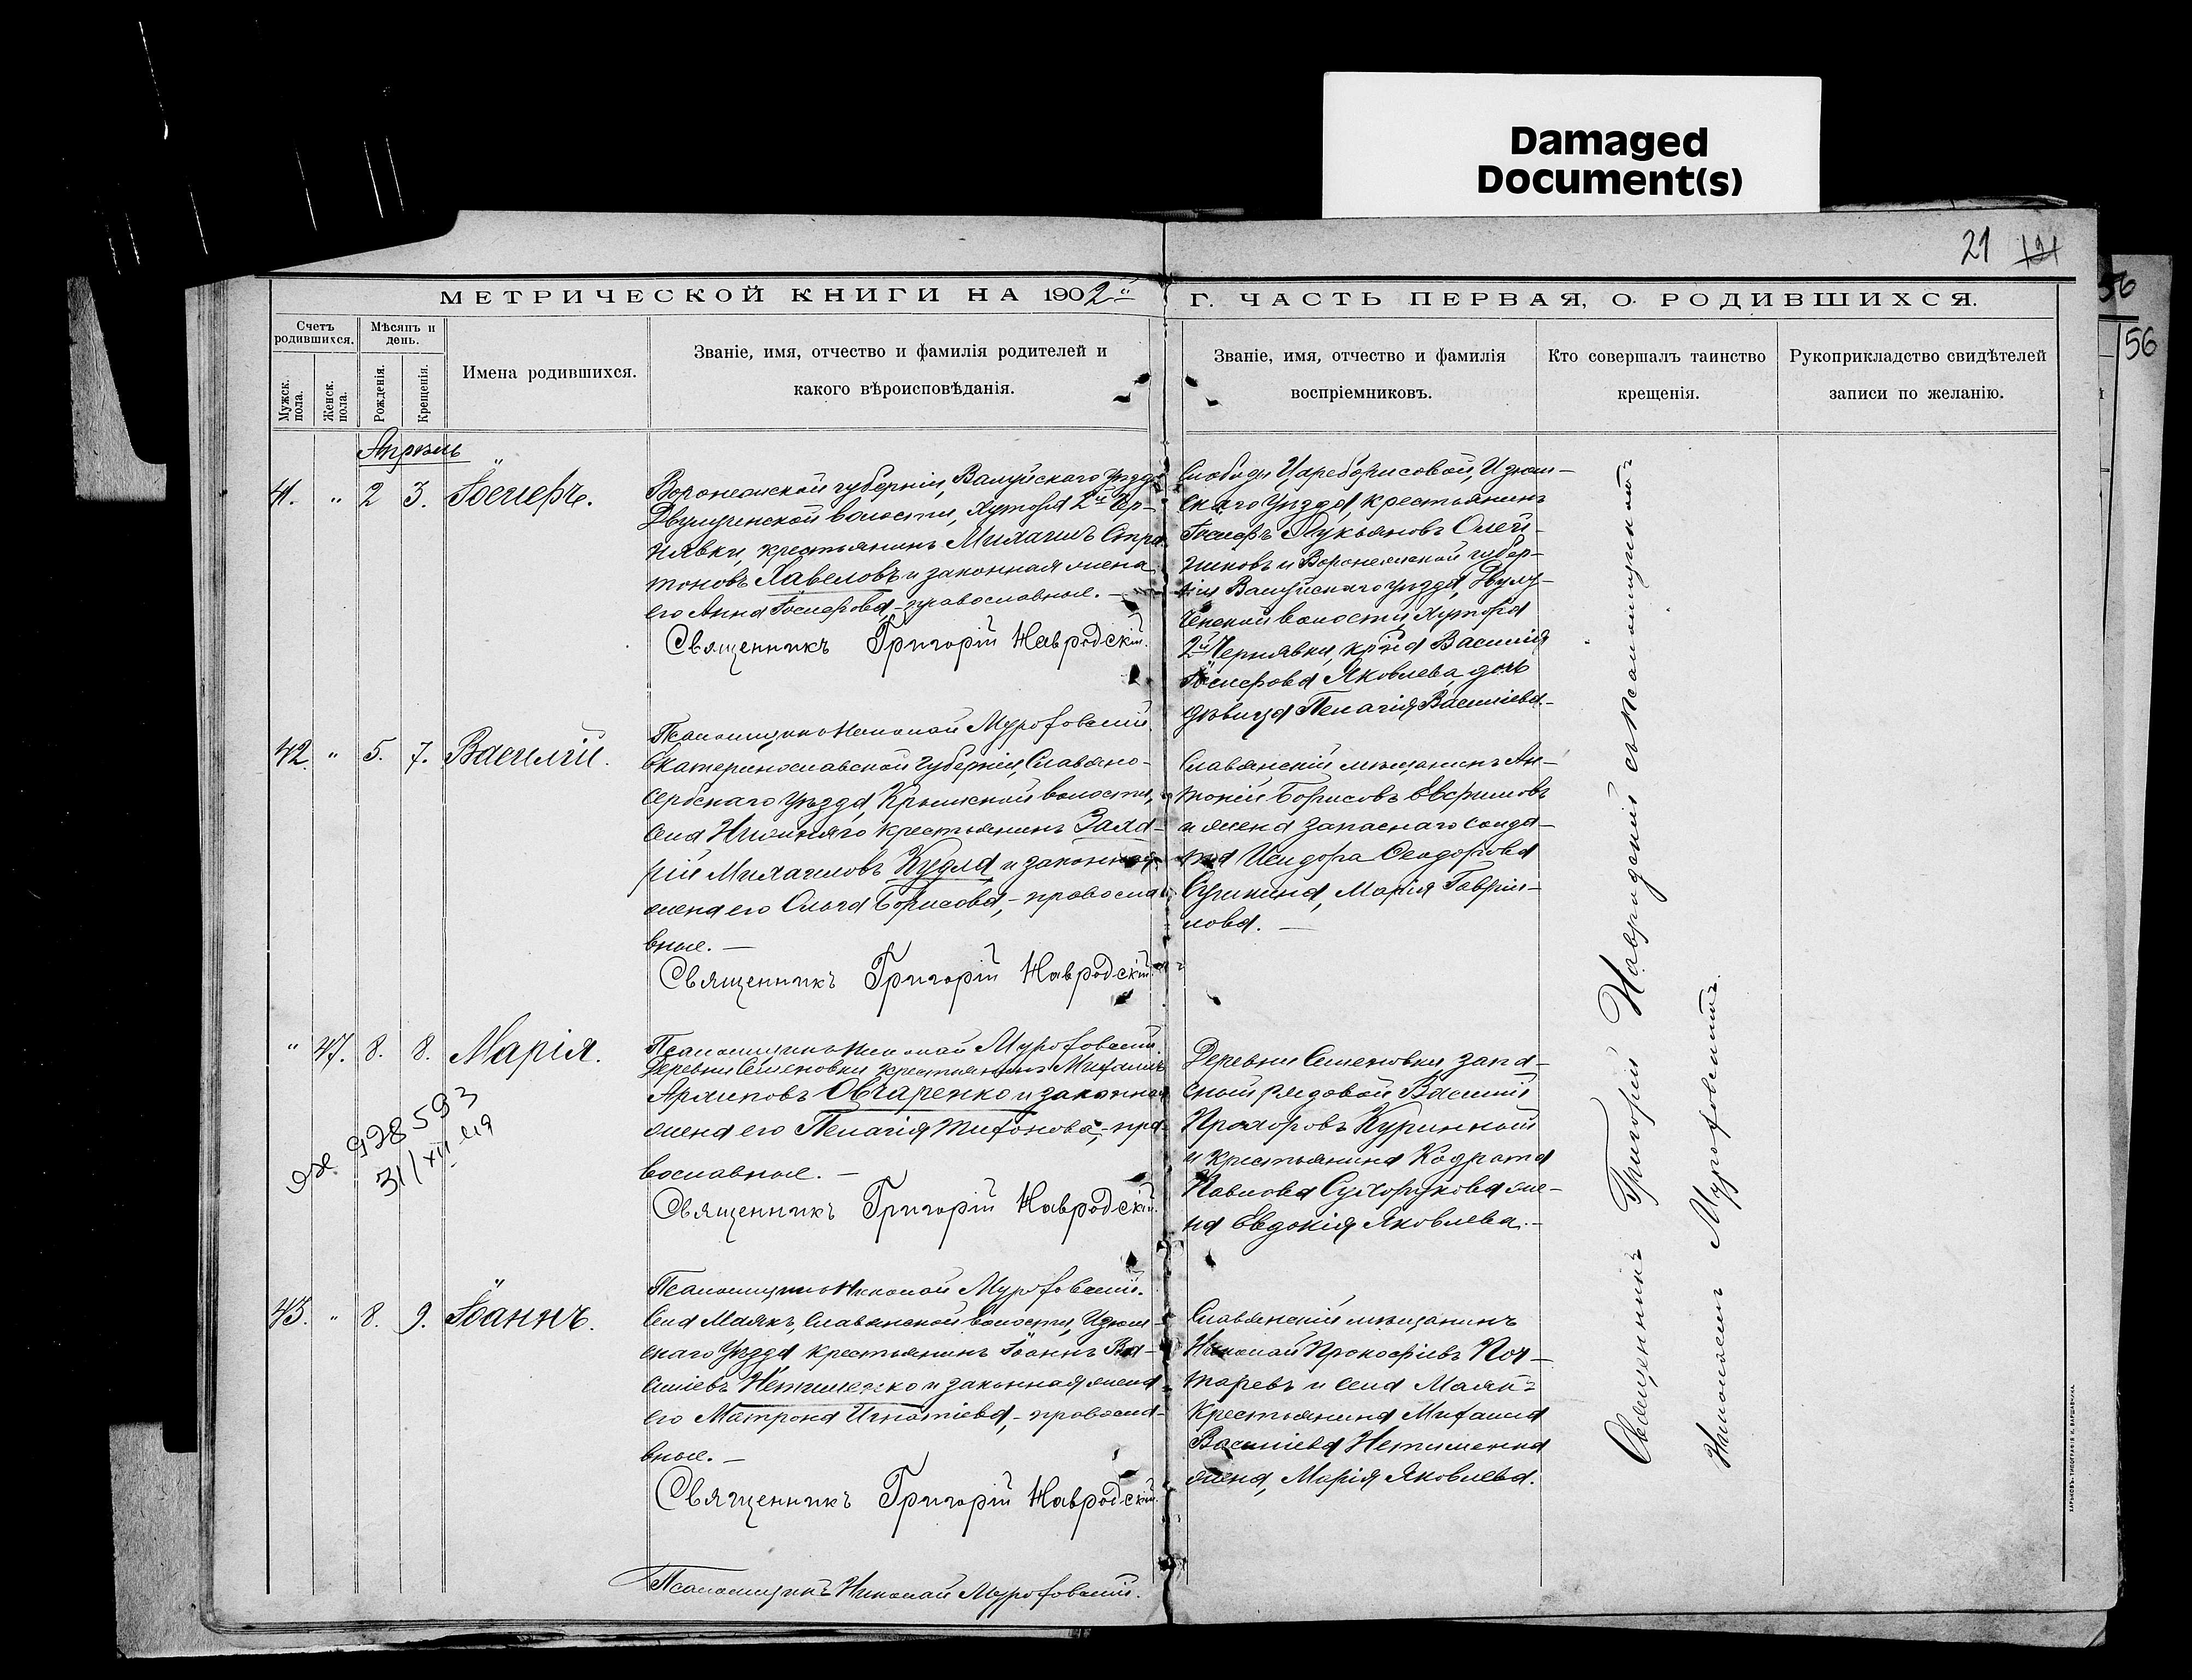 Damaged
Document(s)
21
56
56
МЕТРИЧЕСКОЙ КНИГИ НА 1902 Г. ЧАСТЬ ПЕРВАЯ, О РОДИВШИХСЯ.
Счетъ родившихся.
Мужск. пола.
Женск. пола.
Мѣсяцъ и день.
Рожденія.
Крещенія.
Имена родившихся.
Званіе, имя, отчество и фамилія родителей и
какого вѣроисповѣданія.
Званіе, имя, отчество и фамилія
воспріемниковъ.
Кто совершалъ таинство
крещенія.
Рукоприкладство свидѣтелей
записи по желанію.
Апрѣль
41. " 2 3. Іосифъ.
Воронежской губерніи, Валуйскаго уѣзда
Двулученской волости, хутора 2й Чер-
нявки, крестьянинъ Михаилъ
тоновъ Павеловъ и законная жена
его Анна Іосифова, - православные. -
Священникъ Григорій Навродскій.
Псаломщикъ Николай
Слободы Цареборисовой, Изюм-
скаго уѣзда, крестьянинъ
Іосифъ Лукьяновъ Олей-
никовъ и Воронежской губер-
ніи Валуйскаго уѣзда, Двулу-
ченской волости, хутора
2й Чернявки, кр-на Василія
Іосифова Яковлева, дочь
дѣвица Пелагія Васильева.-
42. " 5. 7. Василій.
Екатеринославской губерніи, Славяно-
сербскаго уѣзда, Крымской волости,
села Нижняго крестьянинъ Заха-
рій Михаиловъ Кудла и законная
жена его Ольга Борисова, - правосла
вные. -
Священникъ Григорій Навродскій.
Псаломщикъ Николай
Славянскій мѣщанинъ Ан-
тоній Борисовъ Евфимовъ
и жена запаснаго солда-
та Исидора Ѳеодорова
Марія Гаврии-
лова. -
" 47. 8. 8. Марія.
Деревни Семеновки крестьянинъ Михаилъ
Архиповъ Овчаренко и законная
жена его Пелагія Тихонова, - пра-
вославные. -
Священникъ Григорій Навродскій.
Псаломщикъ Николай
Деревни Семеновки запа-
сный рядовой Василій
Прохоровъ Куринный
и крестьянина Кодрата
Павлова Сухорукова же-
на Евдокія Яковлева. -
928593
31/XII
43. " 8. 9. Іоаннъ.
Села Маякъ, Славянской волости, Изюм-
скаго уѣзда крестьянинъ Іоаннъ Ва-
силіевъ Нетименко и законная жена
его Матрона Игнатіева, - правосла-
вные. -
Священникъ Григорій Навродскій.
Псаломщикъ Николай
Славянскій мѣщанинъ
Николай Прокофіевъ
и села Маякъ
крестьянина Михаила
Василіева Нетименка
жена, Марія Яковлева.
Священникъ Григорій Навродскій съ псаломщикомъ
Николаемъ